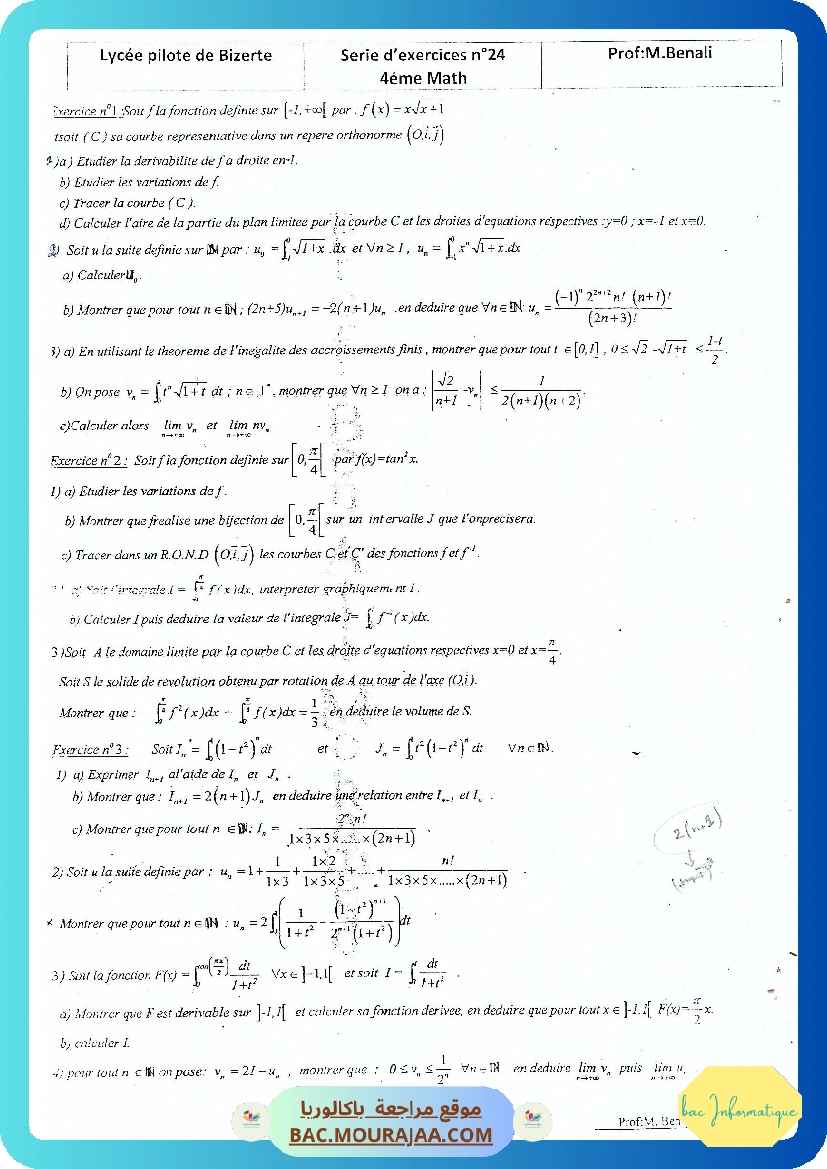 Lycée pilote de Bizerte
Serie d'exercices n°24
4éme Math
Prof:M.Benali
Exercice n°1 :Soit f la fonction definie sur [-1, +∞[ par : f(x) = x√x+1
tsoit ( C ) sa courbe representative dans un repere orthonorme (O,i,j)
)a) Etudier la derivabilite de f a droite en-1.
b) Etudier les variations de f.
c) Tracer la courbe ( C ).
d) Calculer l'aire de la partie du plan limitee par la courbe C et les droites d'equations respectives :y=0 ; x=-1 et x=0.
Soit u la suite definie sur ℕ par : u₀ = ∫₋₁⁰ √1+x .dx et ∀n ≥ 1, uₙ = ∫₋₁⁰ xⁿ√1+x.dx
a) Calculer U₀.
b) Montrer que pour tout n ∈ ℕ ; (2n+5)uₙ₊₁ = -2(n+1)uₙ .en deduire que ∀n ∈ ℕ: uₙ = (-1)ⁿ 2²ⁿ⁺² n! (n+1)! / (2n+3)!
3) a) En utilisant le theoreme de l'inegalite des accroissements finis , montrer que pour tout t ∈ [0,1] , 0 ≤ √2 -√1+t ≤ 1-t / 2 .
b) On pose vₙ = ∫₀¹ tⁿ√1+t dt ; n ∈ * , montrer que ∀n ≥ 1 on a : |√2 / n+1 -vₙ| ≤ 1 / 2(n+1)(n+2) .
c)Calculer alors lim vₙ et lim nvₙ
n→+∞ n→+∞
Exercice n°2 : Soit f la fonction definie sur [0, π/4[ par f(x)=tan²x.
1) a) Etudier les variations de f .
b) Montrer que f realise une bijection de [0, π/4[ sur un intervalle J que l'onprecisera.
c) Tracer dans un R.O.N.D (O,i,j) les courbes C et C' des fonctions f et f⁻¹.
a) Soit l'integrale I = ∫₀^π/4 f(x)dx, interpreter graphiquement I .
b) Calculer I puis deduire la valeur de l'integrale J= ∫₀¹ f⁻¹(x)dx.
3 )Soit A le domaine limite par la courbe C et les droite d'equations respectives x=0 et x= π/4 .
Soit S le solide de revolution obtenu par rotation de A au tour de l'axe (O,i).
Montrer que : ∫₀^π/4 f²(x)dx + ∫₀^π/4 f(x)dx = 1/3 , en deduire le volume de S.
Exercice n°3 : Soit Iₙ = ∫₀¹(1-t²)ⁿ dt et Jₙ = ∫₀¹ t²(1-t²)ⁿ dt ∀n ∈ ℕ.
1) a) Exprimer Iₙ₊₁ al'aide de Iₙ et Jₙ .
b) Montrer que : Iₙ₊₁ = 2(n+1)Jₙ en deduire une relation entre Iₙ₊₁ et Iₙ .
c) Montrer que pour tout n ∈ ℕ: Iₙ = 2ⁿn! / 1×3×5×.....×(2n+1) .
2(n+1)
2) Soit u la suite definie par : uₙ = 1 + 1 / 1×3 + 1×2 / 1×3×5 + ..... + n! / 1×3×5×.....×(2n+1)
Montrer que pour tout n ∈ ℕ : uₙ = 2∫₀¹ (1 / 1+t² - (1-t²)ⁿ⁺¹ / 2ⁿ⁺¹(1+t²)) dt
3 ) Soit la fonction F(x) = ∫₀^tan(πx/2) dt / 1+t² ∀x ∈ ]-1,1[ et soit I = ∫₀¹ dt / 1+t² .
a) Montrer que F est derivable sur ]-1,1[ et calculer sa fonction derivee, en deduire que pour tout x ∈ ]-1,1[ F(x)= π/2 x.
b) calculer I.
4) pour tout n ∈ ℕ on pose: vₙ = 2I - uₙ , montrer que : 0 ≤ vₙ ≤ 1/2ⁿ ∀n ∈ ℕ en deduire lim vₙ puis lim uₙ
n→+∞ n→+∞
موقع مراجعة باكالوريا
BAC.MOURAJAA.COM
Prof:M. Ben
bac Informatique